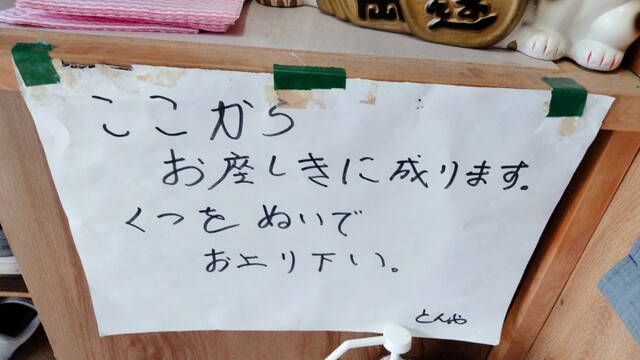 ここから
お座しきに成ります。
くつを ぬいで
お上り下い。
とんや